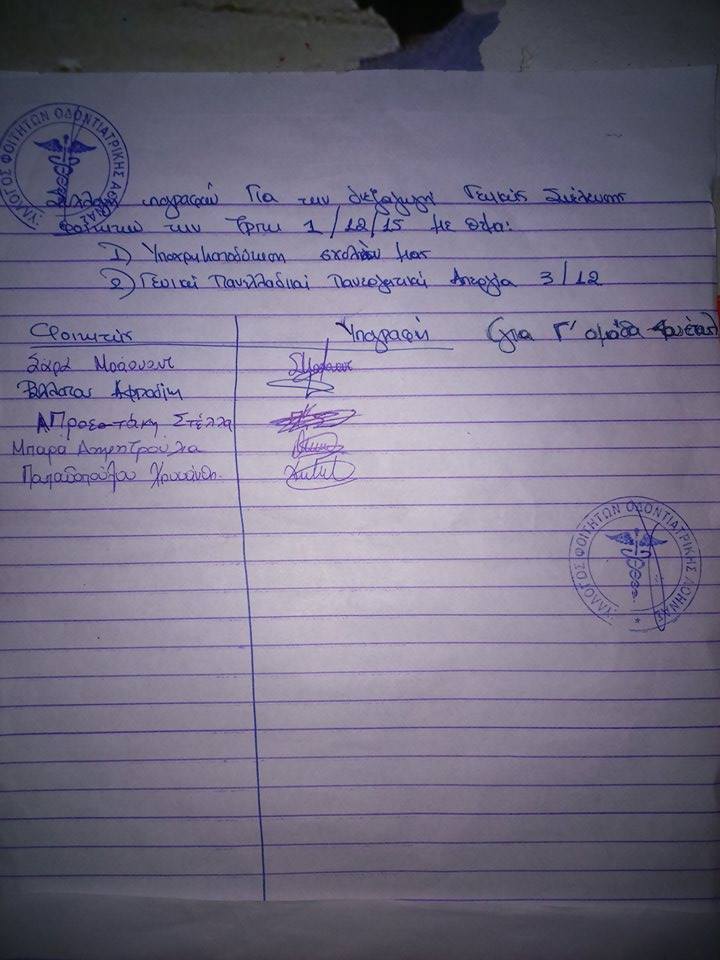 ΣΥΛΛΟΓΟΣ ΦΟΙΤΗΤΩΝ ΟΔΟΝΤΙΑΤΡΙΚΗΣ ΑΘΗΝΑΣ
Συλλογή υπογραφών Για την διεξαγωγή Γενικής Συνέλευσης
φοιτητών την Τρίτη 1/12/15 με θέμα:
1) Υποχρηματοδότηση σχολών μας
2) Γενική Πανελλαδική Πανεργατική Απεργία 3/12
Φοιτητής Υπογραφή (για Γ' ομάδα
Σάρα
Προεστάκη Στέλλα
Μπαρα
Παπαδοπούλου Χρυσάνθη
ΣΥΛΛΟΓΟΣ ΦΟΙΤΗΤΩΝ ΟΔΟΝΤΙΑΤΡΙΚΗΣ ΑΘΗΝΑΣ